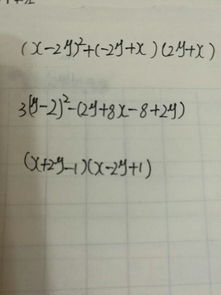 (x-2y)²+(-2y+x)(2y+x)
3(y-2)²-(2y+8x-8+2y)
(x+2y-1)(x-2y+1)